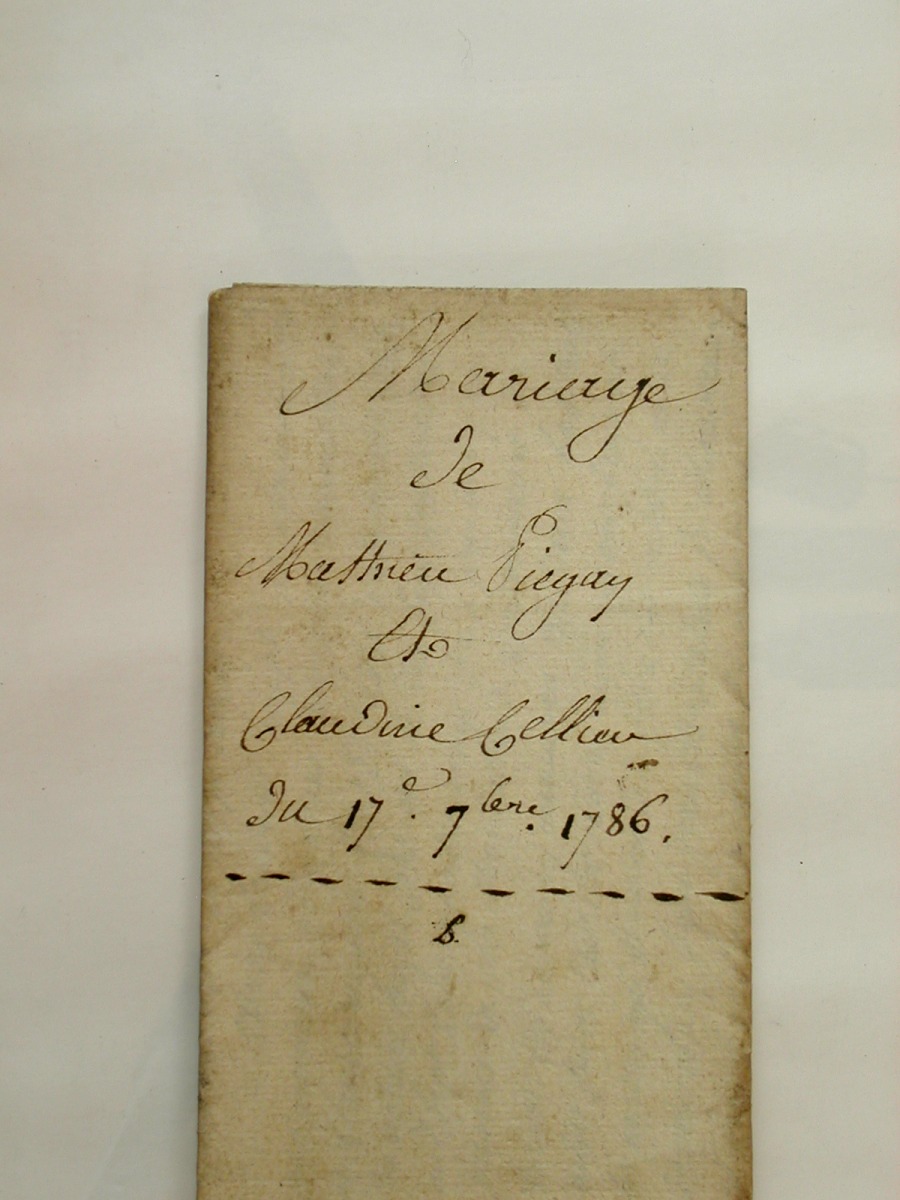 Mariage
de
Mathieu Piegay
Et
Claudine Cellier
du 17e. 7bre. 1786.
6.